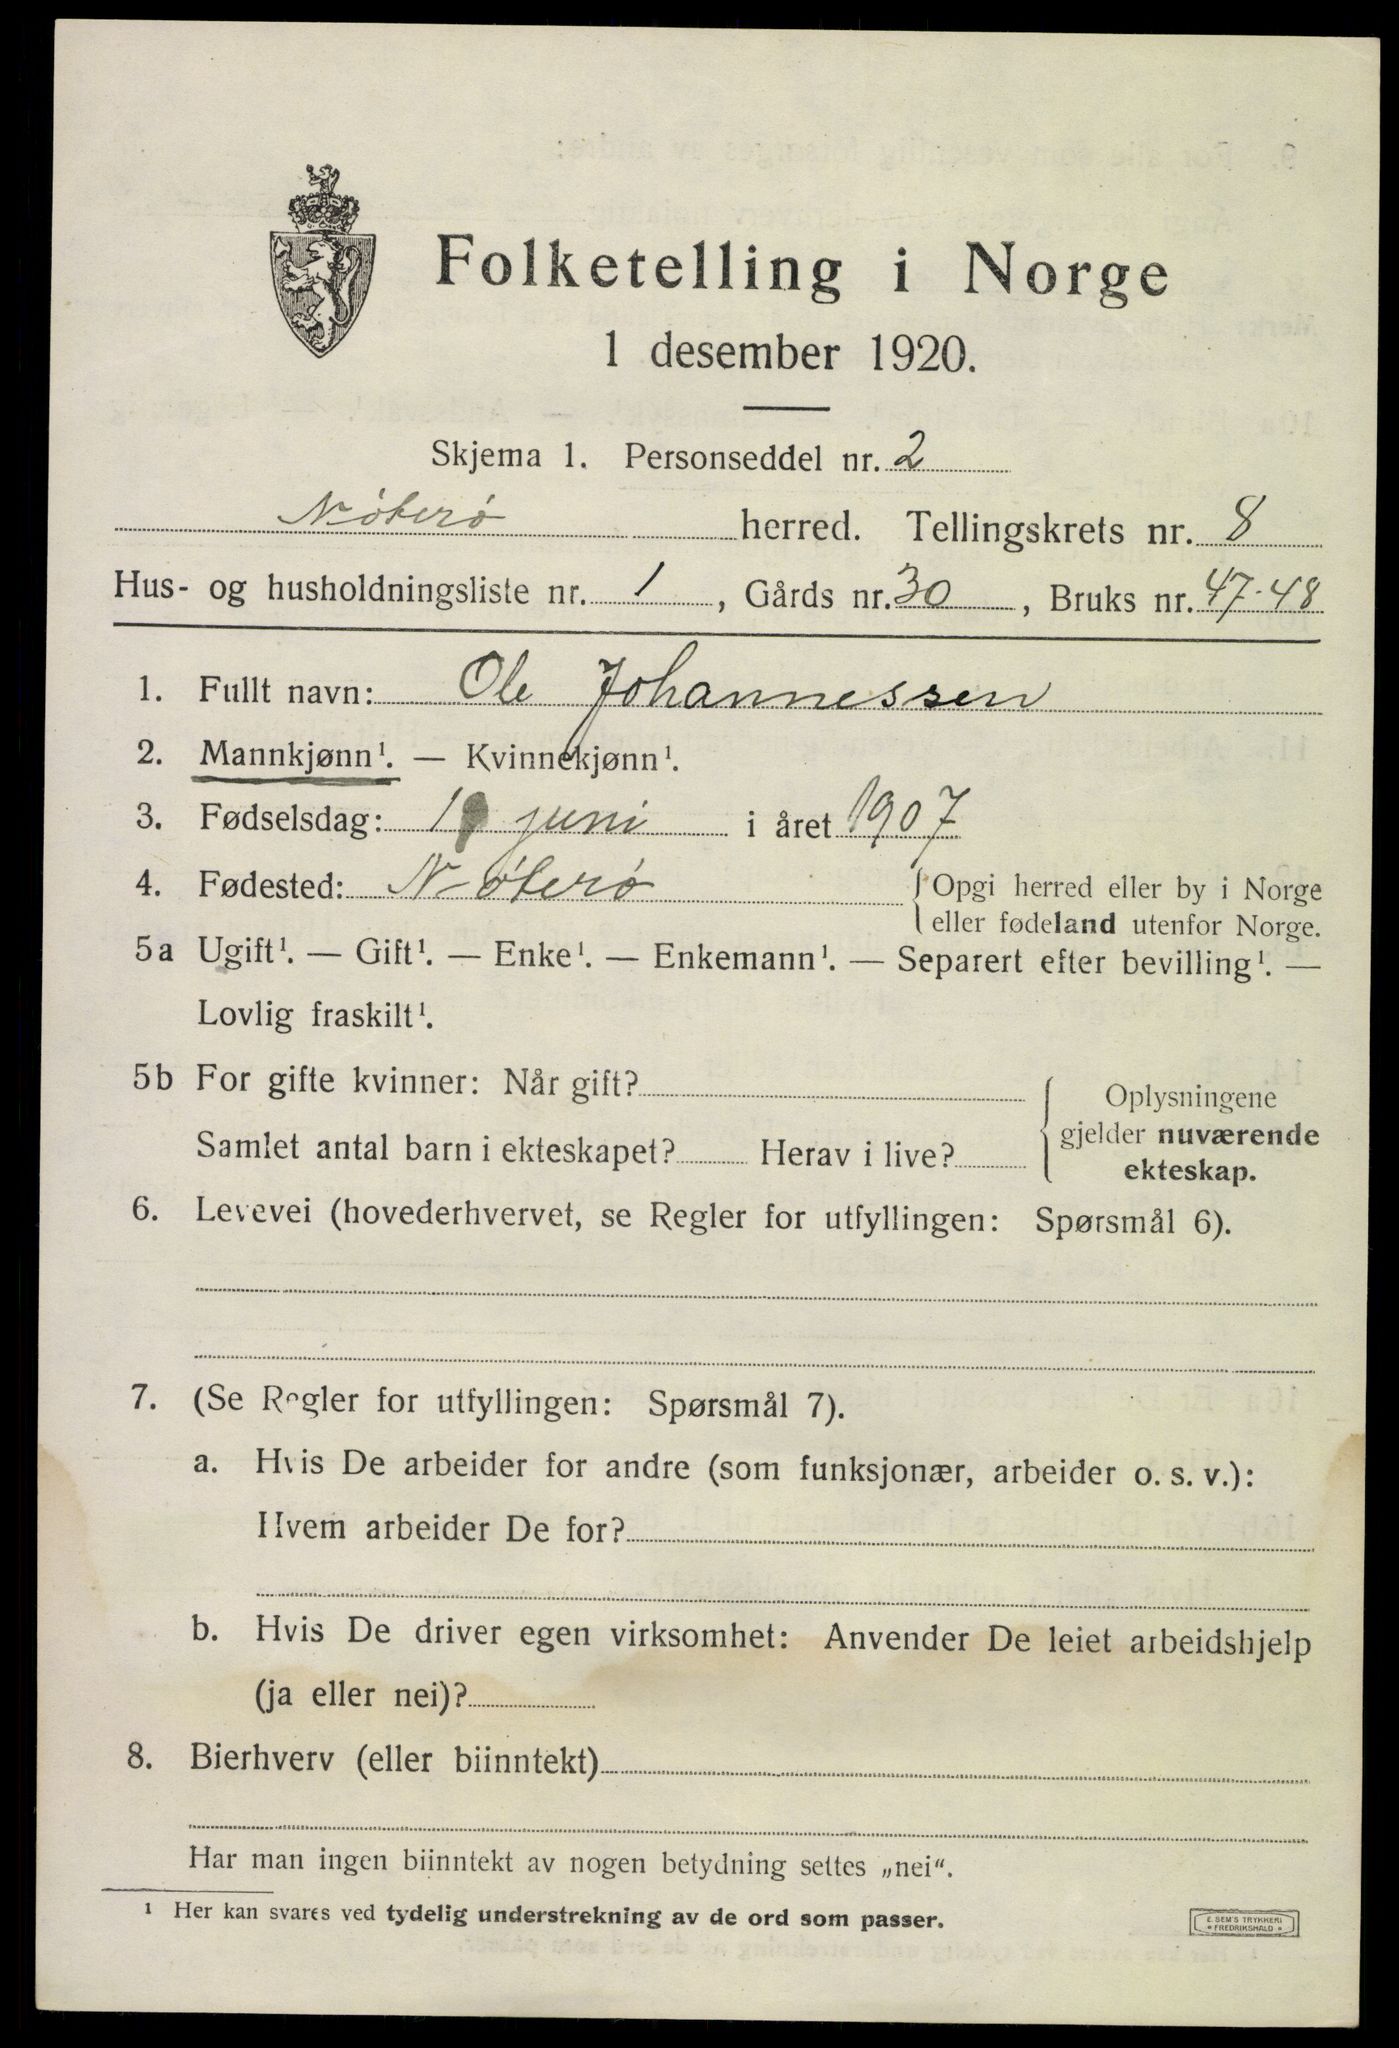 Folketelling i Norge
1 desember 1920.
Skjema 1. Personseddel nr. 2
Nøterø herred. Tellingskrets nr. 8
Hus- og husholdningsliste nr. 1, Gårds nr. 30, Bruks nr. 47-48
1. Fullt navn: Ole Johannessen
2. Mannkjønn¹. — Kvinnekjønn¹.
3. Fødselsdag: juni i året 1907
4. Fødested: Nøterø {Opgi herred eller by i Norge
eller fødeland utenfor Norge.
5a Ugift¹. — Gift¹. — Enke¹. — Enkemann¹. — Separert efter bevilling¹. —
Lovlig fraskilt¹.
5b For gifte kvinner: Når gift?
Samlet antal barn i ekteskapet? Herav i live?
Oplysningene
gjelder nuværende
ekteskap.
6. Levevei (hovederhvervet, se Regler for utfyllingen: Spørsmål 6).
7. (Se Regler for utfyllingen: Spørsmål 7).
a. Hvis De arbeider for andre (som funksjonær, arbeider o. s. v.):
Hvem arbeider De for?
b. Hvis De driver egen virksomhet: Anvender De leiet arbeidshjelp
(ja eller nei)?
8. Bierhverv (eller biinntekt)
Har man ingen biinntekt av nogen betydning settes „nei“.
¹ Her kan svares ved tydelig understrekning av de ord som passer.
E. SEM'S TRYKKERI
FREDRIKSHALD